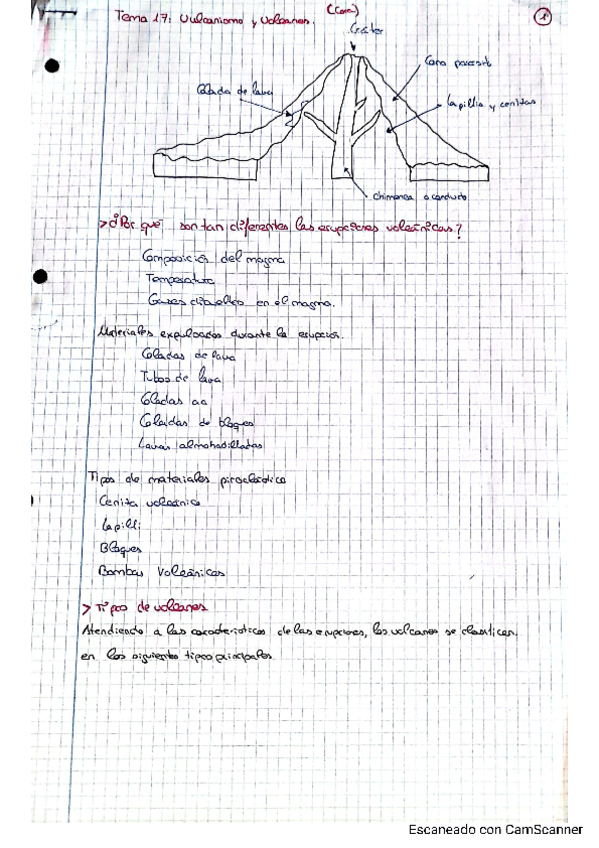 Tema 17: Vulcanismo y Volcanes.
(Cara)
1
Cráter
Cono parasito
Colada de lava
Lapilli y cenizas
chimenea o conducto
> ¿Por qué son tan diferentes las erupciones volcánicas?
Composición del magma
Temperatura
Gases disueltos en el magma.
Materiales expulsados durante la erupción.
Coladas de lava
Tubos de lava
Coladas aa
Coladas de bloques
Lavas almohadilladas
Tipos de materiales piroclástico
Ceniza volcánica
Lapilli
Bloques
Bombas Volcánicas
> Tipos de volcanes
Atendiendo a las características de las erupciones, los volcanes se clasifican.
en los siguientes tipos principales
Escaneado con CamScanner